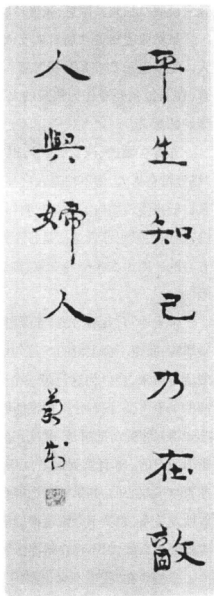 平生知己乃在敵
人與婦人